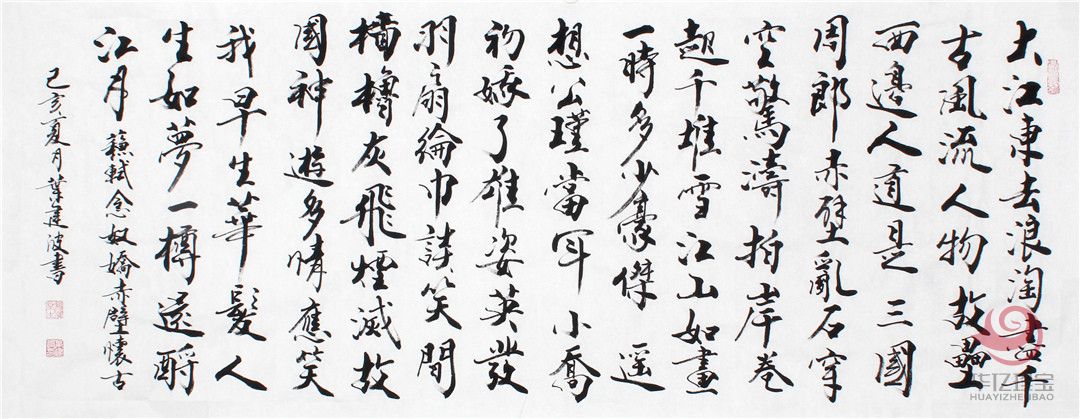 大江東去浪淘盡千
古風流人物故壘
西邊人道是三國
周郎赤壁亂石穿
空驚濤拍岸卷
起千堆雪江山如畫
一時多少豪傑遥
想公瑾當年小喬
初嫁了雄姿英發
羽扇綸巾談笑間
檣櫓灰飛煙滅故
國神遊多情應笑
我早生華髮人
生如夢一樽還酹
江月
蘇軾念奴嬌赤壁懷古
己亥夏月葉建波書
华亿珍宝
HUAYIZHENBAO